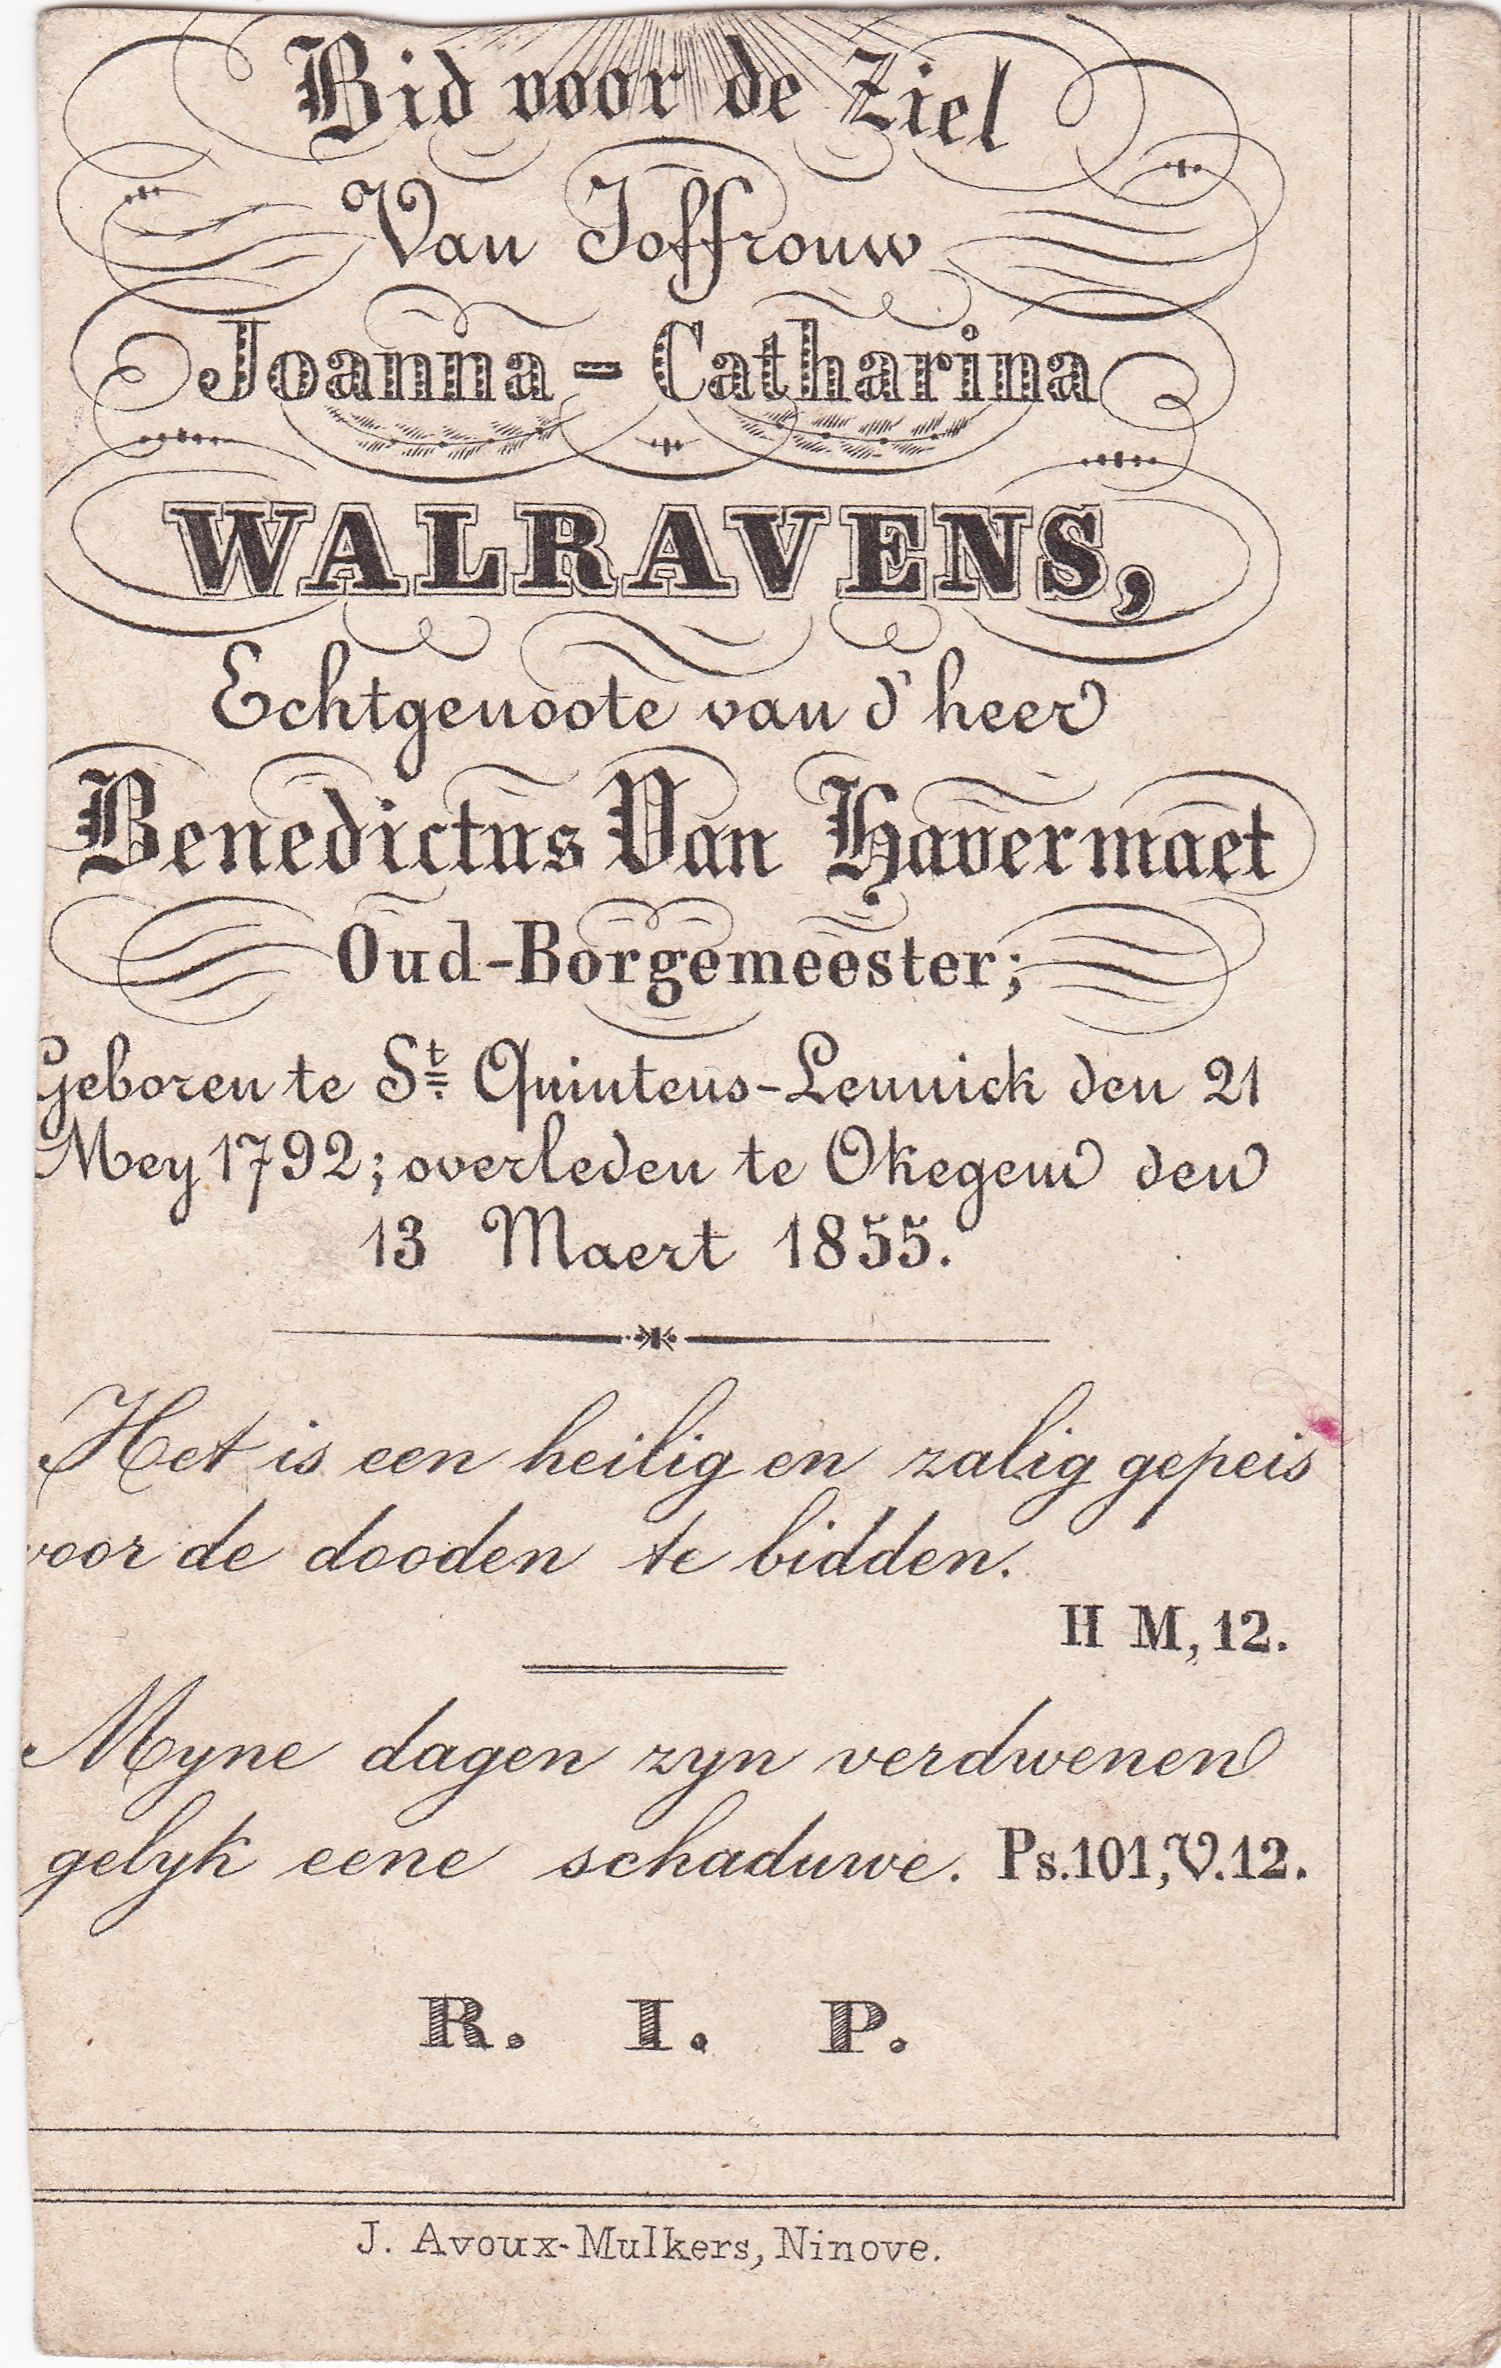 Bid voor de Ziel
Van Joffrouw
Joanna-Catharina
WALRAVENS,
Echtgenoote van d'heer
Benedictus Van Havermaet
Oud-Borgemeester;
Geboren te St Quintens-Lennick den 21
Mey 1792; overleden te Okegem den
13 Maert 1855.
Het is een heilig en zalig gepeis
voor de dooden te bidden.
II M, 12.
Myne dagen zyn verdwenen
gelyk eene schaduwe. Ps.101,V.12.
R. I. P.
J. Avoux-Mulkers, Ninove.